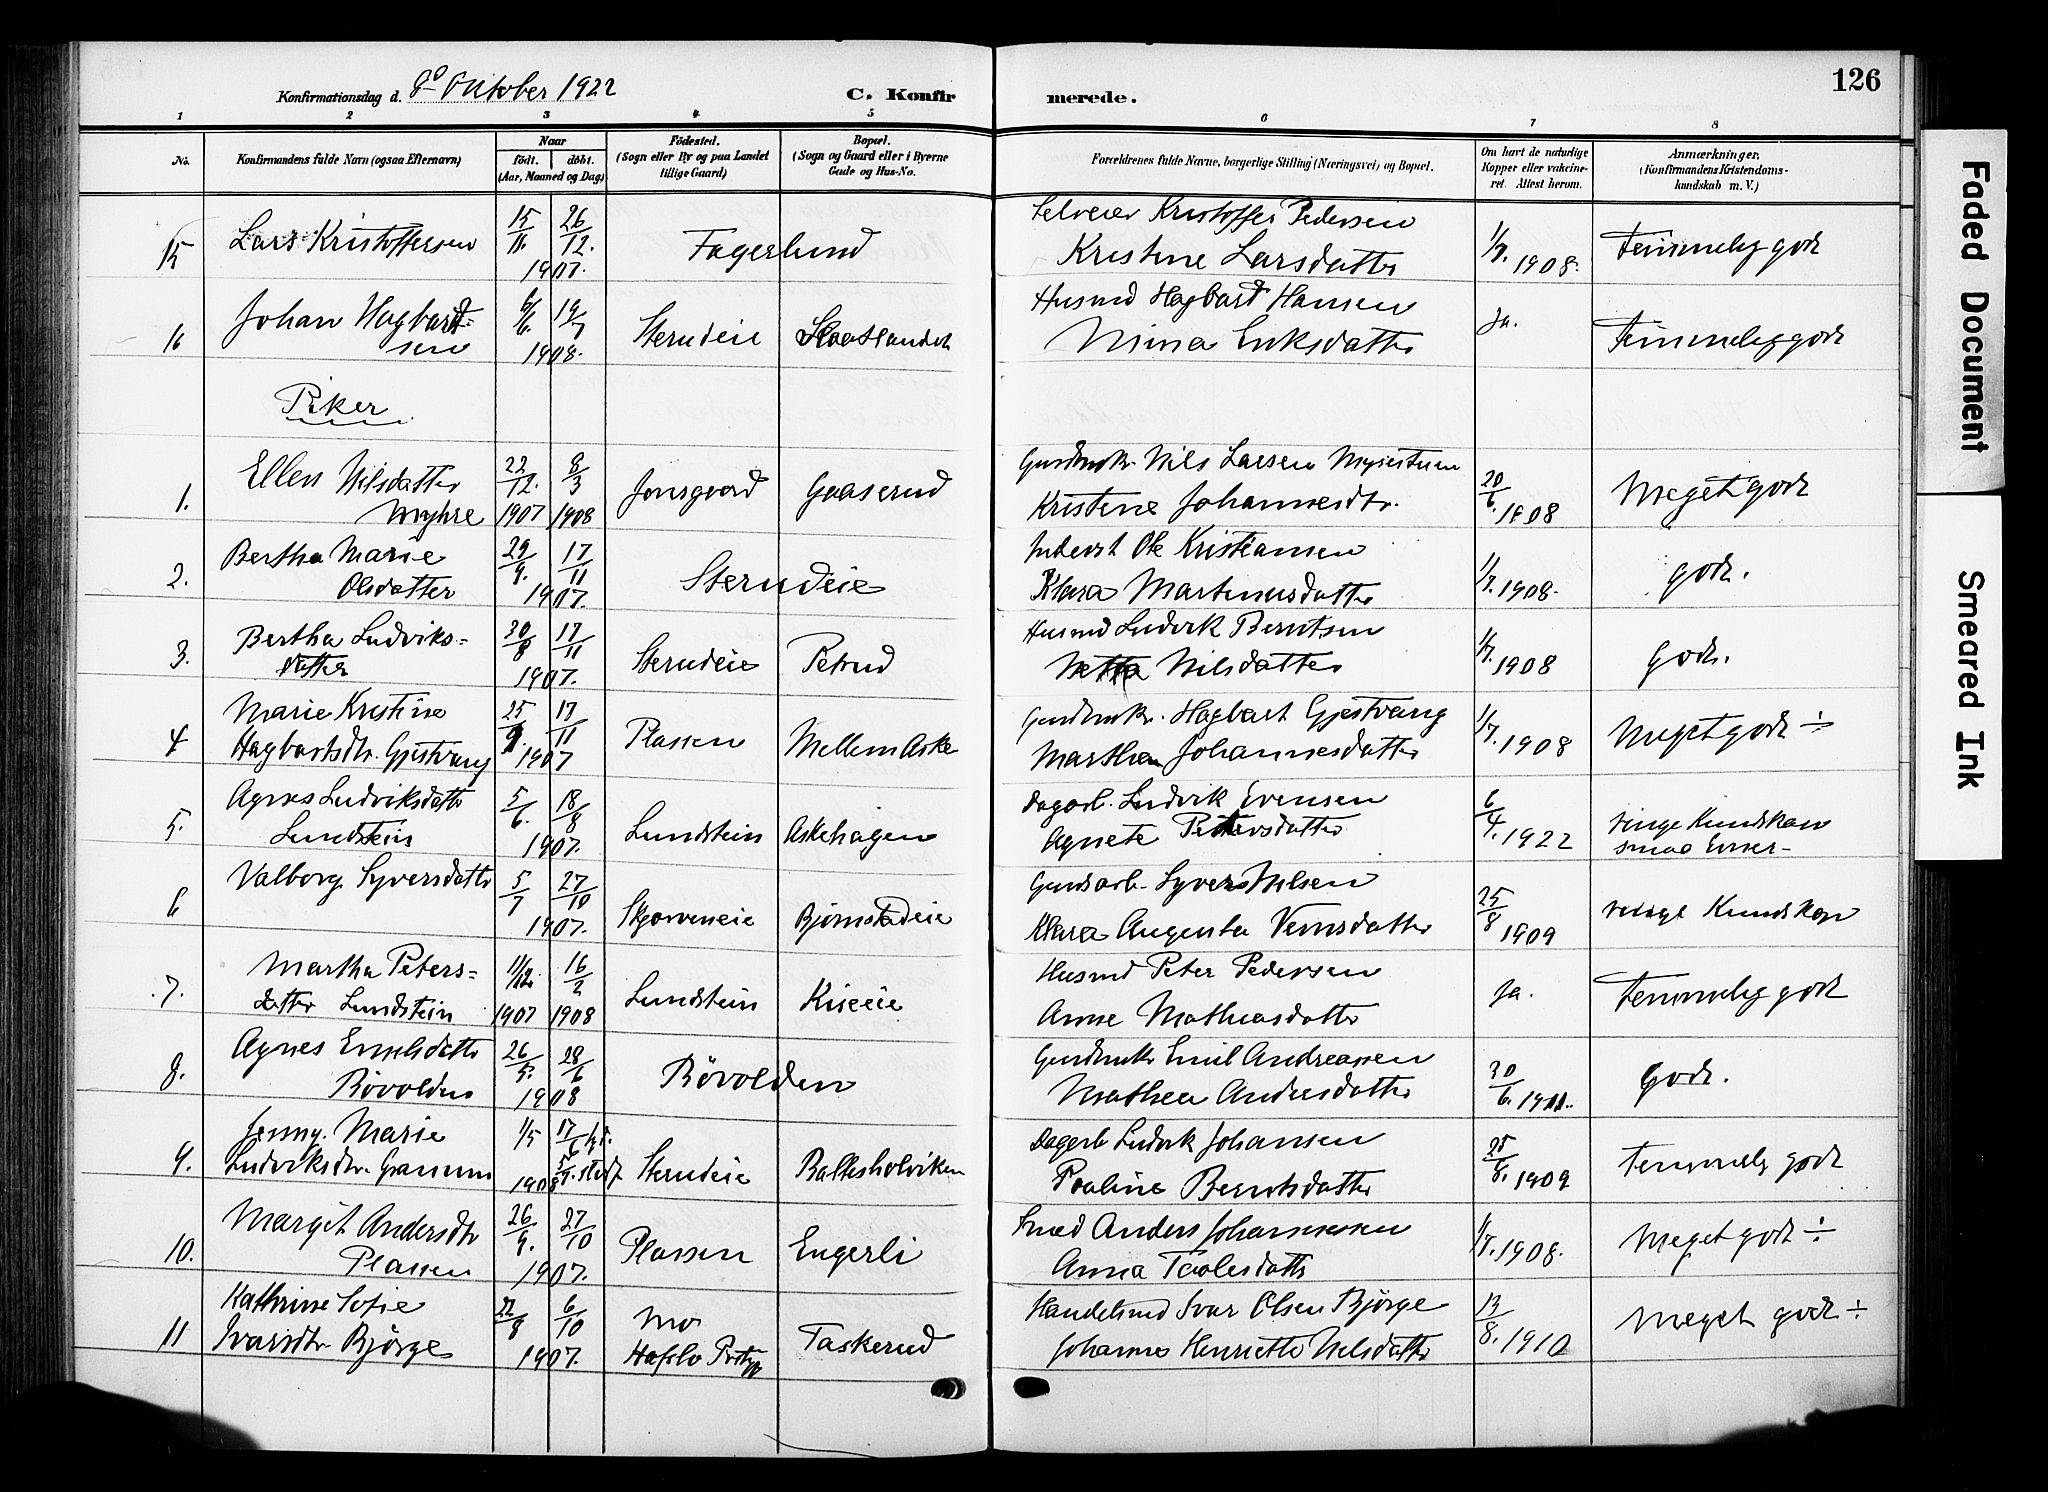 126
Konfirmationsdag d. 8de Oktober 1922 C. Konfirmerede.
1 2 3 4 5 6 7 8
No. Konfirmandens fulde Navn (ogsaa Efternavn) Naar födt. döbt. (Aar, Maaned og Dag) Födested. (Sogn eller By og paa Landet tillige Gaard) Bopæl. (Sogn og Gaard eller i Byerne Gade og Hus-No. Forældrenes fulde Navne, borgerlige Stilling (Næringsvei) og Bopæl. Om havt de naturlige Kopper eller vakcineret. Attest herom. Anmærkninger. (Konfirmandens Kristendomskundskab m. V.)
15 Lars Kristoffersen 15/11. 26/12. 1907. Fagerlund Selveier Kristoffer Pedersen
Kristine Larsdatter 1/7. 1908. Temmelig godt
16 Johan Hagbart= 6/6. 19/7 Husmd Hagbart Hansen
sen 1908. Sterudeie Nina Eriksdatter Ja. Temmelig godt
Piker
1. Ellen Nilsdatter 22/12. 8/3 Gaardbruk. Nils Larsen
Myhre 1907 1908 Jonsgaard Gaaserud Kristine Johannesdtr. 20/6. 1908 Meget godt
2. Bertha Marie 29/9. 17/11 Inderst Ole Kristiansen
Olsdatter 1907. Sterudeie Klara Martinusdatter 1/7. 1908. godt.
3. Bertha Ludviks= 30/8 17/11 Husmd Ludvik Berntsen
datter 1907. Sterudeie Petrud Netta Nilsdatter 1/7. 1908 godt.
4 Marie Kristine 25/9 17/11 Gaardbruk. Hagbart Gjestvang
Hagbartsdtr. Gjestvang 1907 Plassen Mellem Aske Marthea Johannesdatter 1/7. 1908 Meget godt ÷
5. Agnes Ludviksdatter 5/6. 18/8 Dagarb. Ludvik Evensen
Lundstein 1907. Lundstein Askehagen Agnete Petersdatter 6/4. 1922 ringe Kundskap
smaa Evner-
6 Valborg Syversdatter 5/7 27/10 Gaardsarb. Syver Nilsen
1907. Skjarveneie Bjørnstadeie Klara Augusta 25/8 1909 Kundskap
7. Martha Peters= 11/12. 16/2 Husmd Peter Pedersen
datter Lundstein 1907 1908 Lundstein Kiseeie Anne Mathiasdatter Ja. Temmelig godt
8. Agnes Emilsdatter 26/5. 28/6 Gaardbruk. Emil Andreassen
Røvolden 1908 Røvolden Mathea Andersdatter 30/6. 1911. Godt.
9. Jenny. Marie 1/5 17/6 Dagarb Ludvik Johansen
Ludviksdtr. Granum 1908 Sterudeie Balkesholviken Pauline Berntsdatter 25/8. 1909 Temmelig godt
10. Margit Andersdtr 26/9. 27/10 Smed Anders Johannessen
Plassen 1907. Plassen Engerli Anna 1/7. 1908. Meget godt ÷
11 Kathrine Sofie 22/8 6/10 Mo Handelsmd Ivar Olsen Bjørge
Ivarsdtr Bjørge 1907. Hafslo Taskerud Johanne Henriette Nilsdatter 13/8. 1910 Meget godt ÷
Faded Document
Smeared Ink